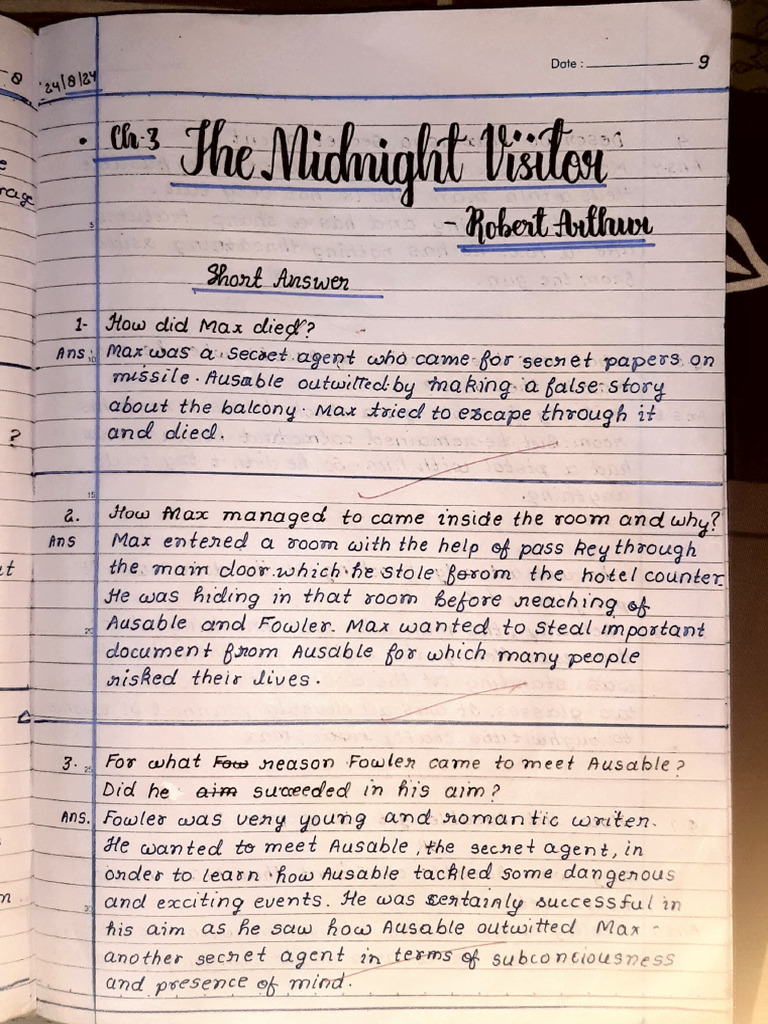 24/8/24
Date : 9
• Ch-3 The Midnight Visitor
- Robert Arthur
Short Answer
1- How did Max died?
Ans: Max was a secret agent who came for secret papers on
missile. Ausable outwitted by making a false story
about the balcony. Max tried to escape through it
and died.
2. How Max managed to came inside the room and why?
Ans Max entered a room with the help of pass key through
the main door which he stole from the hotel counter.
He was hiding in that room before reaching of
Ausable and Fowler. Max wanted to steal important
document from Ausable for which many people
risked their lives.
3. For what Fow reason Fowler came to meet Ausable?
Did he aim succeeded in his aim?
Ans. Fowler was very young and romantic writer.
He wanted to meet Ausable, the secret agent, in
order to learn how Ausable tackled some dangerous
and exciting events. He was sertainly successful in
his aim as he saw how Ausable outwitted Max -
another secret agent in terms of subconciousness
and presence of mind.